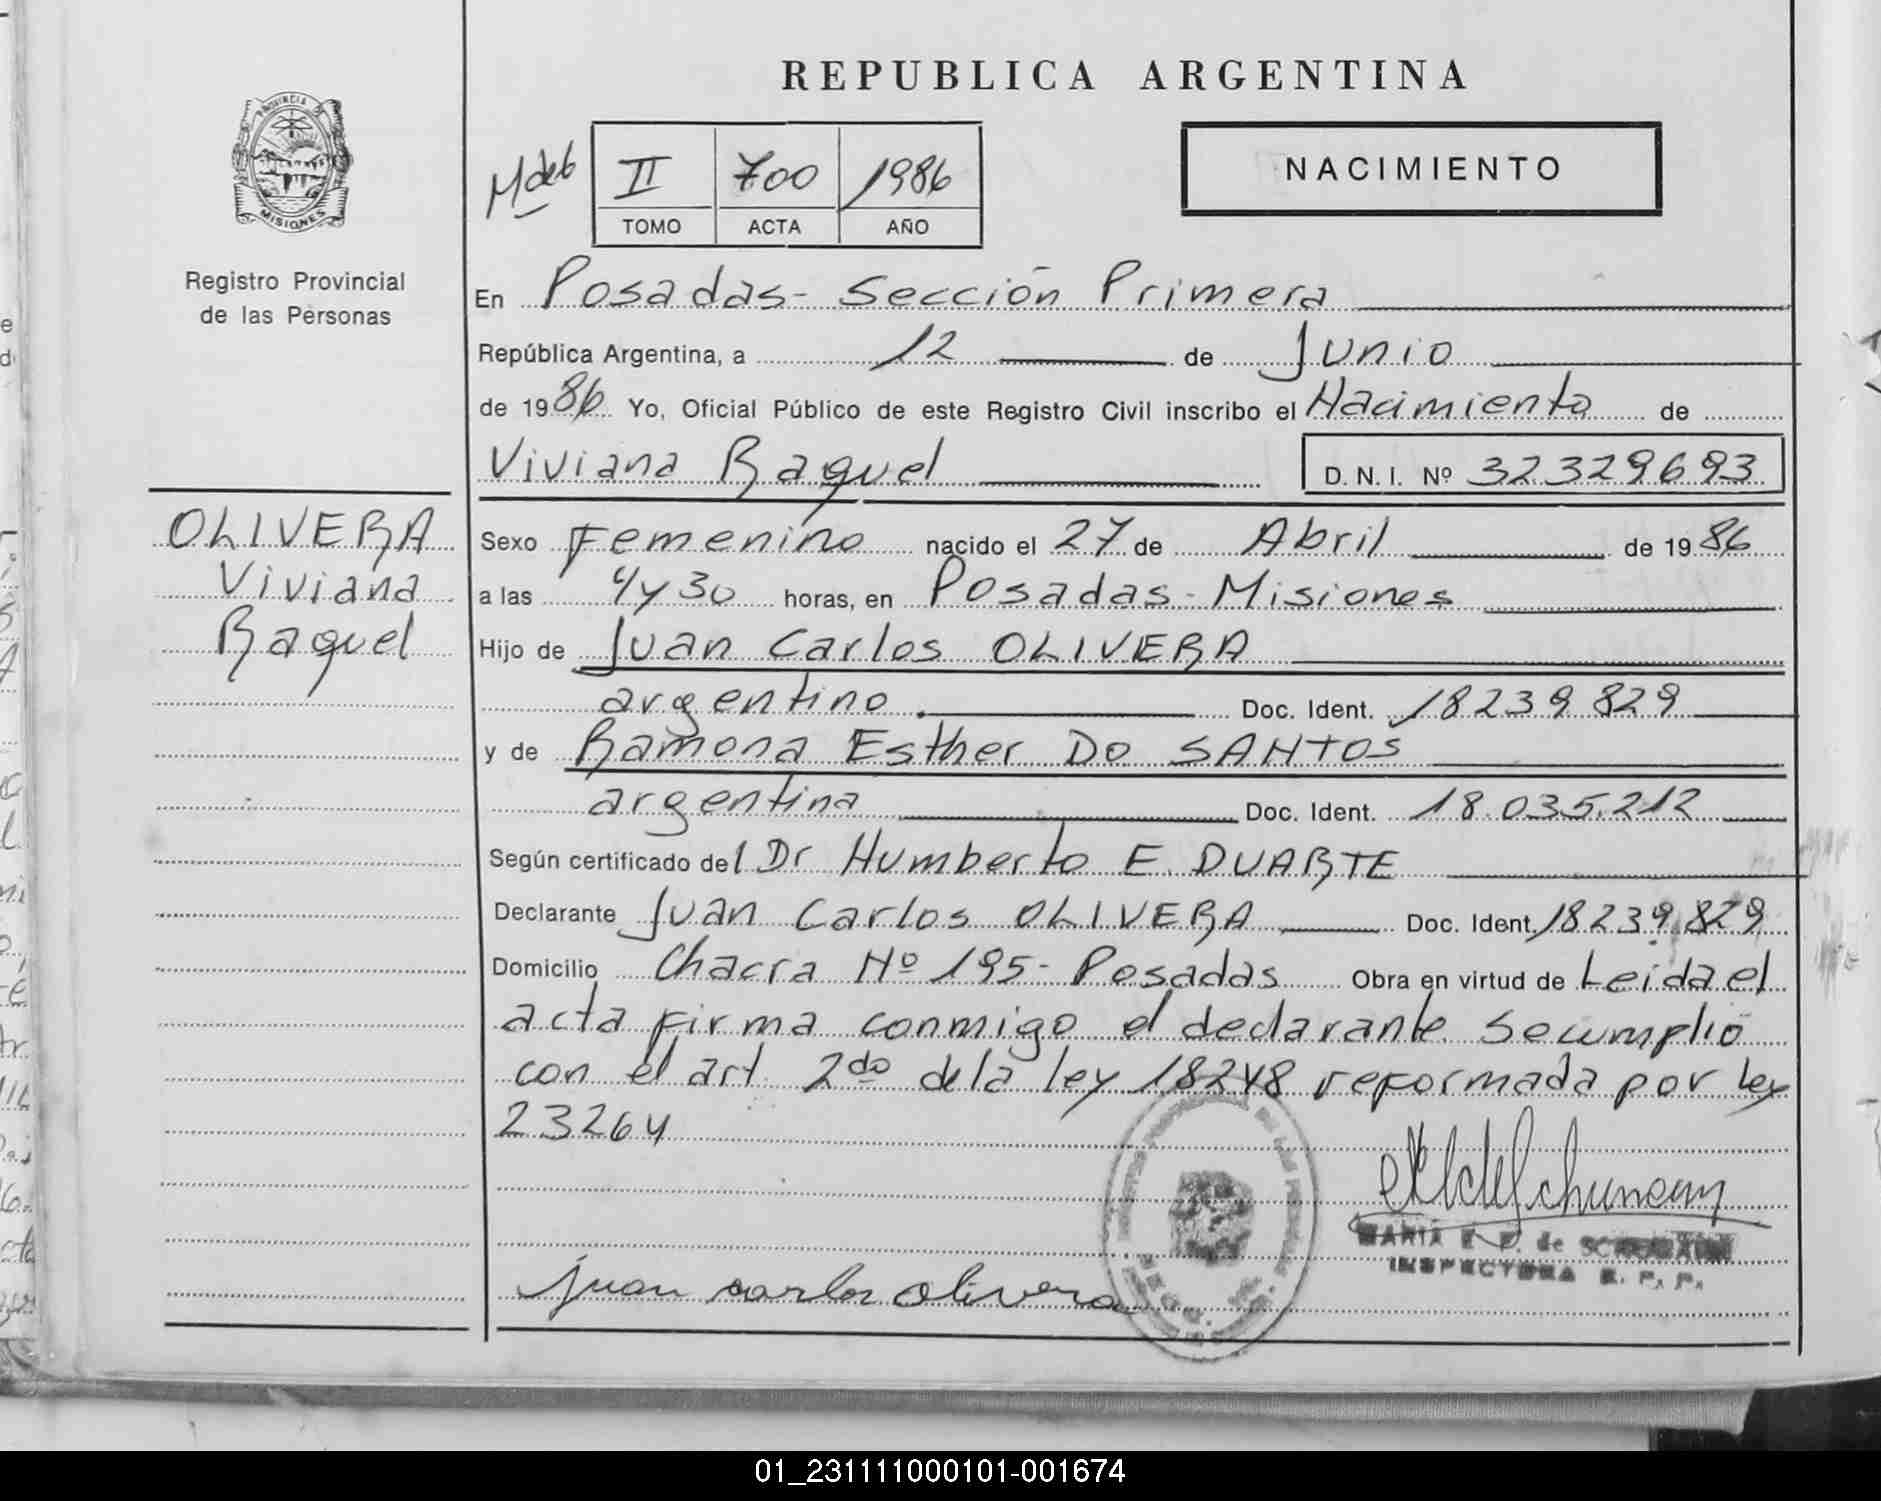 REPUBLICA ARGENTINA
PROVINCIA DE
MISIONES
Registro Provincial
de las Personas
II 700 1986
TOMO ACTA AÑO
NACIMIENTO
En Posadas - Sección Primera
República Argentina, a 12 de Junio
de 1986 Yo, Oficial Público de este Registro Civil inscribo el Nacimiento de
Viviana Raquel D. N. I. Nº 32329693
OLIVERA
Viviana
Raquel
Sexo Femenino nacido el 27 de Abril de 1986
a las 4 y 30 horas, en Posadas - Misiones
Hijo de Juan Carlos OLIVERA
argentino. Doc. Ident. 18239829
y de Ramona Esther Do SANTOS
argentina Doc. Ident. 18.035.212
Según certificado del Dr Humberto E. DUARTE
Declarante Juan Carlos OLIVERA Doc. Ident. 18239829
Domicilio Chacra Nº 195 - Posadas Obra en virtud de Leida el
acta firma conmigo el declarante. Se cumplió
con el art. 2do de la ley 18248 reformada por ley
23264
juan carlos olivera
MARIA E. de
INSPECTORA R. P. P.
01_231111000101-001674